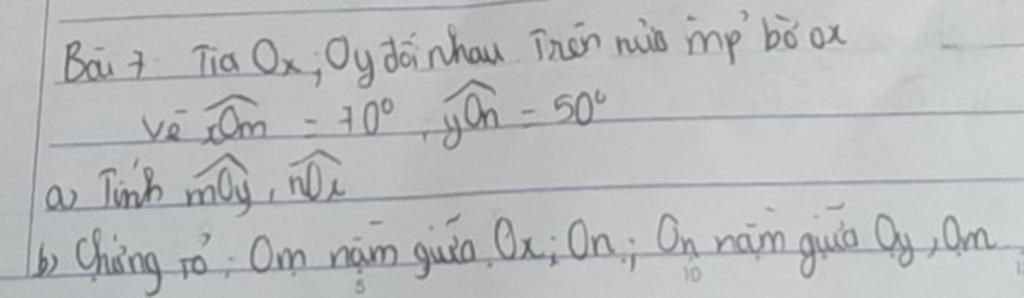 Bài 7 Tia Ox; Oy đối nhau Trên nửa mp bờ ox
Vẽ xOm = 70°, yOn = 50°
a) Tính mOy, nOx
b) Chứng rỏ: Om nằm giữa Ox; On; On nằm giữa Oy, Om
5 10